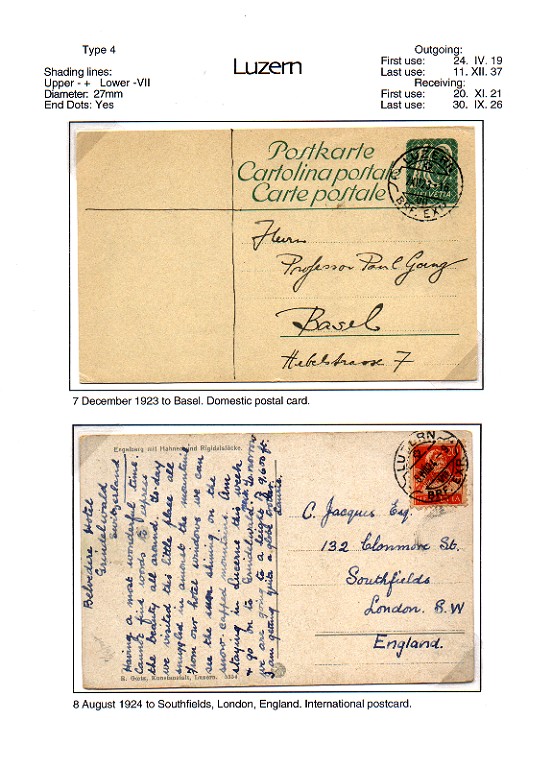 Type 4
Shading lines:
Upper - + Lower -VII
Diameter: 27mm
End Dots: Yes
Luzern
Outgoing:
First use: 24. IV. 19
Last use: 11. XII. 37
Receiving:
First use: 20. XI. 21
Last use: 30. IX. 26
Postkarte
Cartolina postale
Carte postale
LUZERN
BRF. EXP.
HELVETIA
Herrn
Professor Paul
Basel
Hebelstrasse 7
7 December 1923 to Basel. Domestic postal card.
Engelberg mit Hahnen und Rigidalstöcke.
Belvedere Hotel
Grindelwald
Switzerland
Having a most wonderful time.
Cannot find words to express
the beauty all around. to-day
we visited this little place all
smuggled in amongst the mountains
From our hotel windows we can
see the sun shining on the
snow-capped mountains. Am
staying in Lucerne this week
& go on to Grindelwald
we are going to a height of 9,600 ft.
I am getting quite a globe
LUZERN
BRF. EXP.
20
C. Jacques Esq.
132 Clonmore St.
Southfields
London. S.W
England.
Kunstanstalt, Luzern.
8 August 1924 to Southfields, London, England. International postcard.